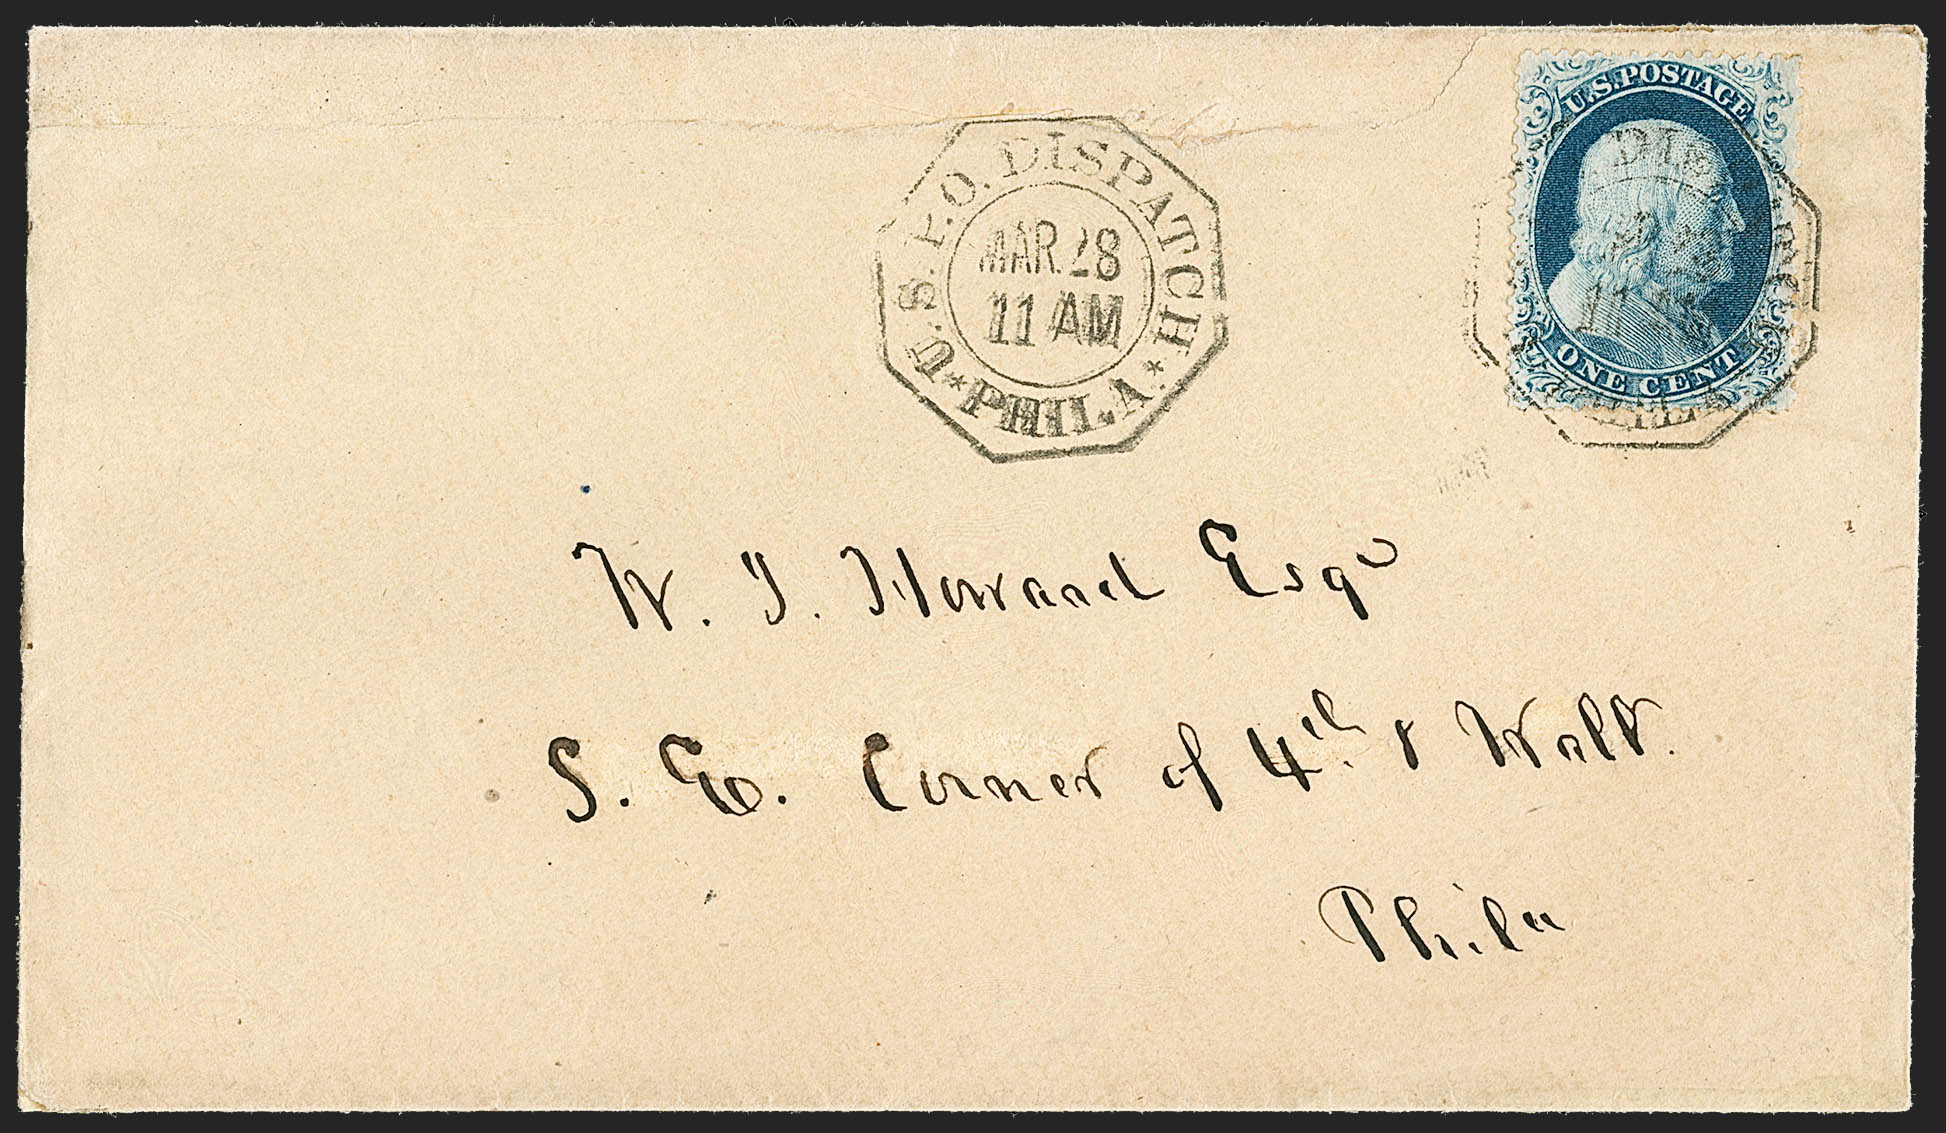 U.S. POSTAGE
ONE CENT
U.S.P.O. DISPATCH
MAR. 28
11 AM
* PHILA. *
W. J. Howard Esqr
S. E. Corner of 4th & Waltt.
Phila